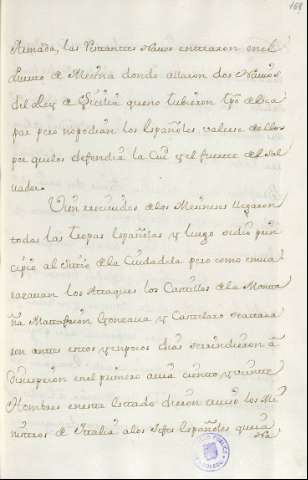 169
Armada, las Restantes Naves entraron en el
Puerto de Mesina donde allaron dos Navios
del Rey de Sicilia que no tubieron tpō de esca
par pero no podian los Españoles valerse dellos
por que los defendia la Ciud y el fuerte de Sal
uador.
Vien receuidas de los Mesineses llegaron
todas las tropas Españolas y luego se dio prin
cipio al Sitio de la Ciudadela pero como emba
razauan los Ataques los Castillos de la Monta
ña Matagrifon Gonzaua y Castelazo se ataca
ron antes estos y en pocos dias se rindieron à
discrecion en el primero auia ciento y veinte
Hombres en este estado dieron auiso los Mi
nistros de Italia a los Jefes Españoles que ia